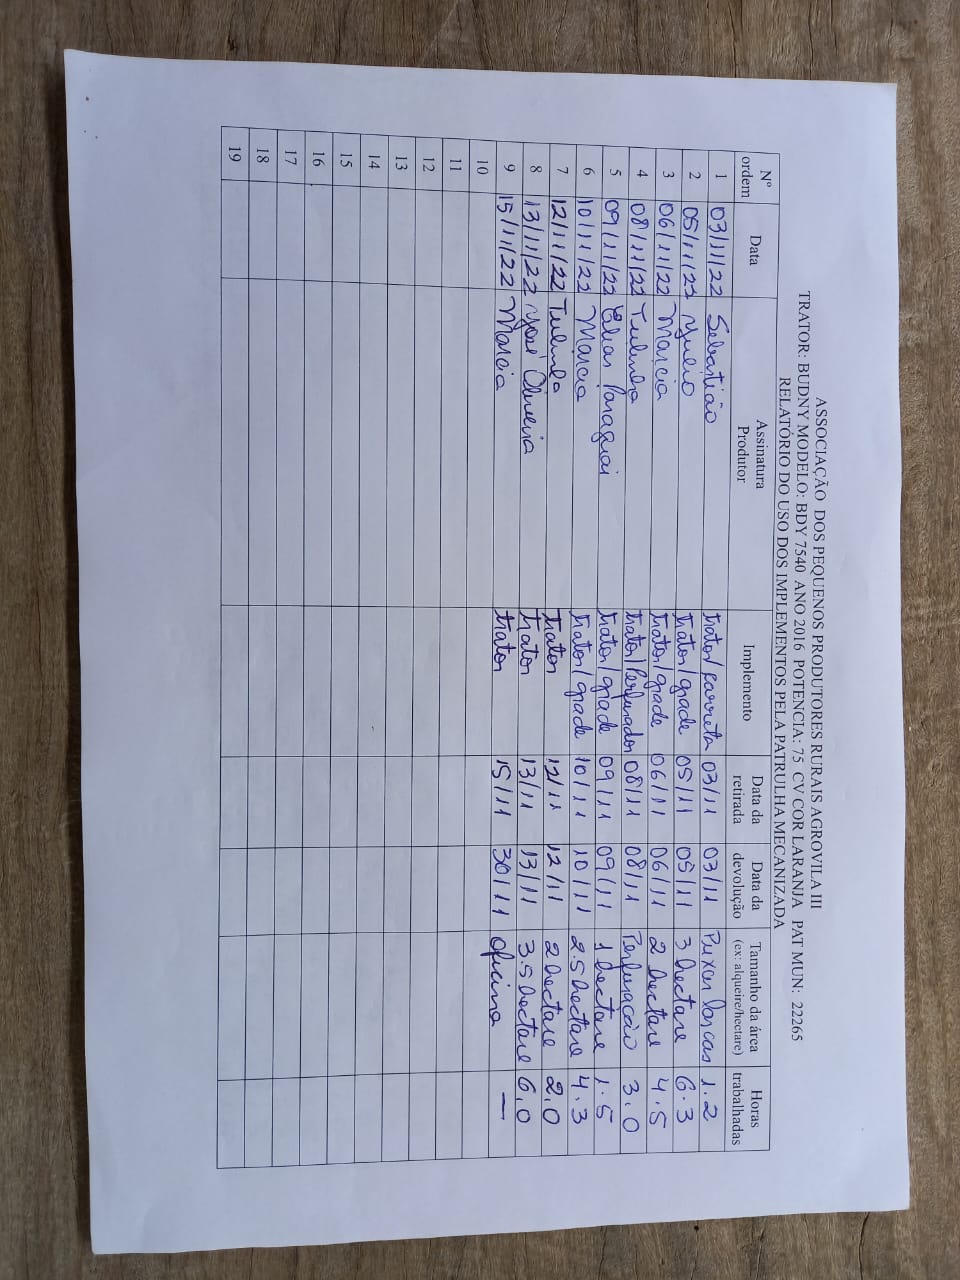 ASSOCIAÇÃO DOS PEQUENOS PRODUTORES RURAIS AGROVILA III
TRATOR: BUDNY MODELO: BDY 7540 ANO 2016 POTENCIA: 75 CV COR LARANJA PAT MUN: 22265
RELATÓRIO DO USO DOS IMPLEMENTOS PELA PATRULHA MECANIZADA
Nº ordem Data Assinatura Produtor Implemento Data da retirada Data da devolução Tamanho da área (ex: alqueire/hectare) Horas trabalhadas
1 03/11/22 Sebastião trator/carreta 03/11 03/11 Puxar lascas 1.2
2 05/11/22 trator/grade 05/11 05/11 3 hectare 6.3
3 06/11/22 Marcia trator/grade 06/11 06/11 2 hectare 4.5
4 08/11/22 Tulinho trator/Perfurador 08/11 08/11 Perfuração 3.0
5 09/11/22 Elias Paraguai trator/grade 09/11 09/11 1 hectare 1.5
6 10/11/22 Marcia trator/grade 10/11 10/11 2.5 hectare 4.3
7 12/11/22 trator 12/11 12/11 2 hectare 2.0
8 13/11/22 José Oliveira trator 13/11 13/11 3.5 hectare 6.0
9 15/11/22 Marcia trator 15/11 30/11 oficina —
10
11
12
13
14
15
16
17
18
19